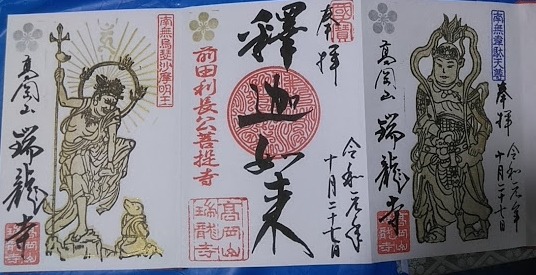 南無烏蒭沙摩明王
高岡山 瑞龍寺
國寶
奉拝
釋迦如来
前田利長公菩提寺
令和元年
十月二十七日
高岡山
瑞龍寺
南無韋駄天尊
奉拝
令和元年
十月二十七日
高岡山 瑞龍寺